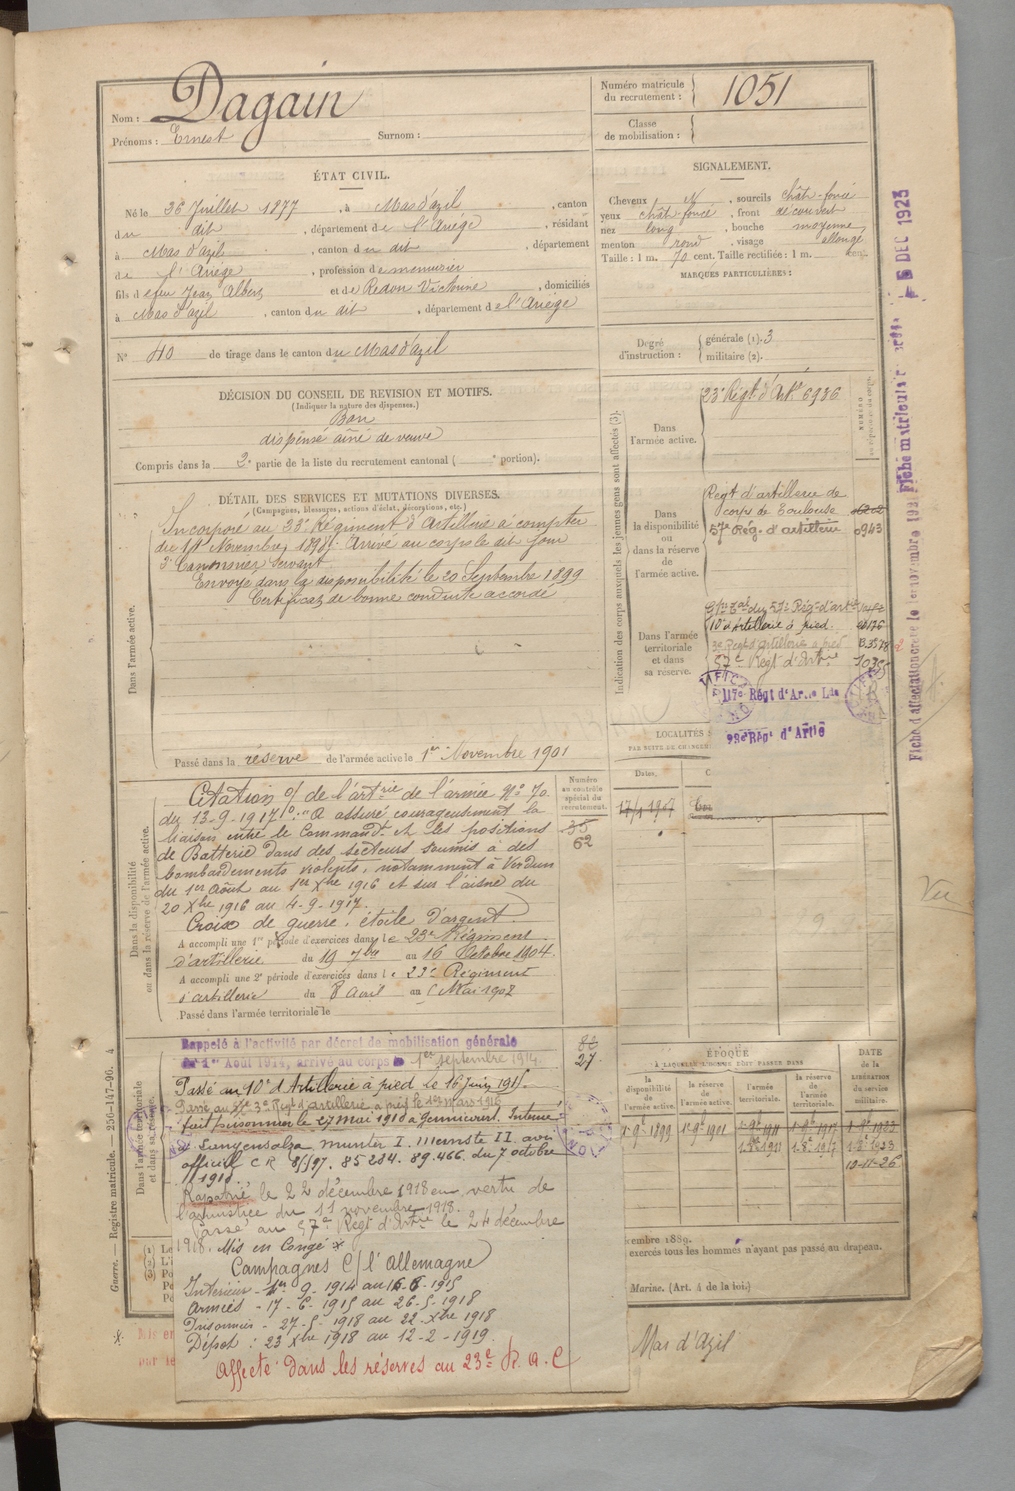 Nom : Dagain
Prénoms : Ernest Surnom :
Numéro matricule du recrutement : 1051
Classe de mobilisation :
ÉTAT CIVIL.
Né le 26 Juillet 1877, à Mas d'azil, canton
du dit, département de l'Ariège, résidant
à Mas d'azil, canton du dit, département
de l'Ariège, profession de menuisier
fils de feu Jean Albert et de Redon Victorine, domiciliés
à Mas d'azil, canton du dit, département de l'Ariège
N° 40 de tirage dans le canton du Mas d'azil
SIGNALEMENT.
Cheveux N, sourcils chât-foncé
yeux chât-foncé, front découvert
nez long, bouche moyenne
menton rond, visage allongé
Taille : 1 m. 70 cent. Taille rectifiée : 1 m. cent.
MARQUES PARTICULIÈRES :
Degré d'instruction : générale (1). 3
militaire (2).
DÉCISION DU CONSEIL DE REVISION ET MOTIFS.
(Indiquer la nature des dispenses.)
Bon
dispensé aîné de veuve
Compris dans la 2e partie de la liste du recrutement cantonal ( e portion).
DÉTAIL DES SERVICES ET MUTATIONS DIVERSES.
(Campagnes, blessures, actions d'éclat, décorations, etc.)
Dans l'armée active.
Incorporé au 23e Régiment d'Artillerie à compter
du 14 Novembre 1898. Arrivé au corps le dit jour
2e Canonnier Servant
Envoyé dans la disponibilité le 20 Septembre 1899
Certificat de bonne conduite accordé
Passé dans la réserve de l'armée active le 1er Novembre 1901
Indication des corps auxquels les jeunes gens sont affectés (3).
Dans l'armée active.
23e Régt d'Art 6936
Dans la disponibilité ou dans la réserve de l'armée active.
Régt d'artillerie de
corps de Toulouse
57e Rég. d'artillerie 0943
Dans l'armée territoriale et dans sa réserve.
10e d'Artillerie à pied
3e Régt d'artillerie à pied
57e Régt d'Artrie
117e Régt d'Artie Lde
23e Régt d'Artie
LOCALITÉS
Dates.
Numéro au contrôle spécial du recrutement.
35
62
Dans la disponibilité ou dans la réserve de l'armée active.
Citation o/ de l'artrie de l'armée No 70
du 13-9-1917 : "A assuré courageusement la
liaison entre le Commandt et les positions
de Batterie dans des secteurs soumis à des
bombardements violents, notamment à Verdun
du 1er Août au 1er Xbre 1916 et sur l'aisne du
20 Xbre 1916 au 4-9-1917.
Croix de guerre, étoile d'argent.
A accompli une 1re période d'exercices dans le 23e Régiment
d'artillerie du 19 7bre au 16 Octobre 1904.
A accompli une 2e période d'exercices dans le 23e Régiment
d'artillerie du 8 Avril au Mai 1907
Passé dans l'armée territoriale le
Dans l'armée territoriale et dans sa réserve.
Rappelé à l'activité par décret de mobilisation générale
du 1er Août 1914, arrivé au corps le 1er septembre 1914.
27
Passé au 10e d'Artillerie à pied le 16 juin 1915.
Passé au 3e Régt d'artillerie à pied le 1er Mars 1916
fait prisonnier le 27 Mai 1918 à Gernicourt. Interné
à Langensalza, munster I. avis
officiel C R 85284. 89.466. du 7 octobre
1918
Rapatrié le 22 décembre 1918 en vertu de
l'armistice du 11 novembre 1918.
Passé au 57e Régt d'Artrie le 24 décembre
1918. Mis en Congé x
Campagnes C/ l'Allemagne
Intérieur - 1er 9. 1914 au 16-6-1915
Armées - 17-6-1915 au 26-5-1918
Prisonnier - 27-5-1918 au 22 Xbre 1918
Dépot : 23 Xbre 1918 au 12-2-1919.
Affecté dans les réserves au 23e R. A. C
ÉPOQUE
À LAQUELLE L'HOMME DOIT PASSER DANS
la disponibilité de l'armée active.
la réserve de l'armée active.
l'armée territoriale.
la réserve de l'armée territoriale.
DATE de la LIBÉRATION du service militaire.
10-11-26
cembre 1889.
exercés tous les hommes n'ayant pas passé au drapeau.
Marine. (Art. 4 de la loi.)
Mas d'Azil
Guerre. — Registre matricule. — 256-147-96. 4
5 DEC 1923